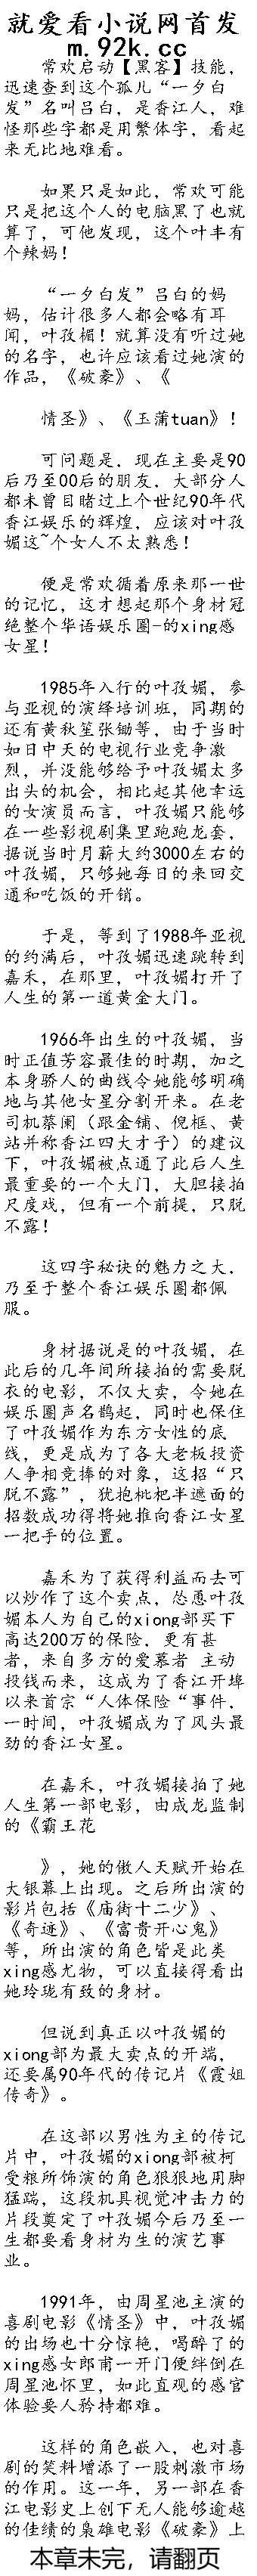 就爱看小说网首发
m.92k.cc
常欢启动【黑客】技能，
迅速查到这个孤儿“一夕白
发”名叫吕白，是香江人，难
怪那些字都是用繁体字，看起
来无比地难看。
如果只是如此，常欢可能
只是把这个人的电脑黑了也就
算了，可他发现，这个叶丰有
个辣妈！
“一夕白发”吕白的妈
妈，估计很多人都会略有耳
闻，叶孜楣！就算没有听过她
的名字，也许应该看过她演的
作品，《破豪》、《
情圣》、《玉蒲tuan》！
可问题是，现在主要是90
后乃至00后的朋友，大部分人
都未曾目睹过上个世纪90年代
香江娱乐的辉煌，应该对叶孜
媚这~个女人不太熟悉！
便是常欢循着原来那一世
的记忆，这才想起那个身材冠
绝整个华语娱乐圈-的xing感
女星！
1985年入行的叶孜媚，参
与亚视的演绎培训班，同期的
还有黄秋笙张锄等，由于当时
如日中天的电视行业竞争激
烈，并没能够给予叶孜媚太多
出头的机会，相比起其他幸运
的女演员而言，叶孜媚只能够
在一些影视剧集里跑跑龙套，
据说当时月薪大约3000左右的
叶孜媚，只够她每日的来回交
通和吃饭的开销。
于是，等到了1988年亚视
的约满后，叶孜媚迅速跳转到
嘉禾，在那里，叶孜媚打开了
人生的第一道黄金大门。
1966年出生的叶孜媚，当
时正值芳容最佳的时期，加之
本身骄人的曲线令她能够明确
地与其他女星分割开来。在老
司机蔡阑（跟金铺、倪框、黄
站并称香江四大才子）的建议
下，叶孜媚被点通了此后人生
最重要的一个大门，大胆接拍
尺度戏，但有一个前提，只脱
不露！
这四字秘诀的魅力之大，
乃至于整个香江娱乐圈都佩
服。
身材据说是的叶孜媚，在
此后的几年间所接拍的需要脱
衣的电影，不仅大卖，令她在
娱乐圈声名鹊起，同时也保住
了叶孜媚作为东方女性的底
线，更是成为了各大老板投资
人争相竞捧的对象，这招“只
脱不露”，犹抱枇杷半遮面的
招数成功得将她推向香江女星
一把手的位置。
嘉禾为了获得利益而去可
以炒作了这个卖点，怂恿叶孜
媚本人为自己的xiong部买下
高达200万的保险，更有甚
者，来自多方的爱慕者 主动
投钱而来，这成为了香江开埠
以来首宗“人体保险“事件，
一时间，叶孜媚成为了风头最
劲的香江女星。
在嘉禾，叶孜媚接拍了她
人生第一部电影，由成龙监制
的《霸王花
》，她的傲人天赋开始在
大银幕上出现。之后所出演的
影片包括《庙街十二少》、
《奇迹》、《富贵开心鬼》
等，所出演的角色皆是此类
xing感尤物，可以直接得看出
她玲珑有致的身材。
但说到真正以叶孜媚的
xiong部为最大卖点的开端，
还要属90年代的传记片《霞姐
传奇》。
在这部以男性为主的传记
片中，叶孜媚的xiong部被柯
受粮所饰演的角色狠狠地用脚
猛踹，这段机具视觉冲击力的
片段奠定了叶孜媚今后乃至一
生都要看身材为生的演艺事
业。
1991年，由周星池主演的
喜剧电影《情圣》中，叶孜媚
的出场也十分惊艳，喝醉了的
xing感女郎甫一开门便绊倒在
周星池怀里，如此直观的感官
体验要人矜持都难。
这样的角色嵌入，也对喜
剧的笑料增添了一股刺激市场
的作用。这一年，另一部在香
江电影史上创下无人能够逾越
的佳绩的枭雄电影《破豪》上
本章未完，请翻页